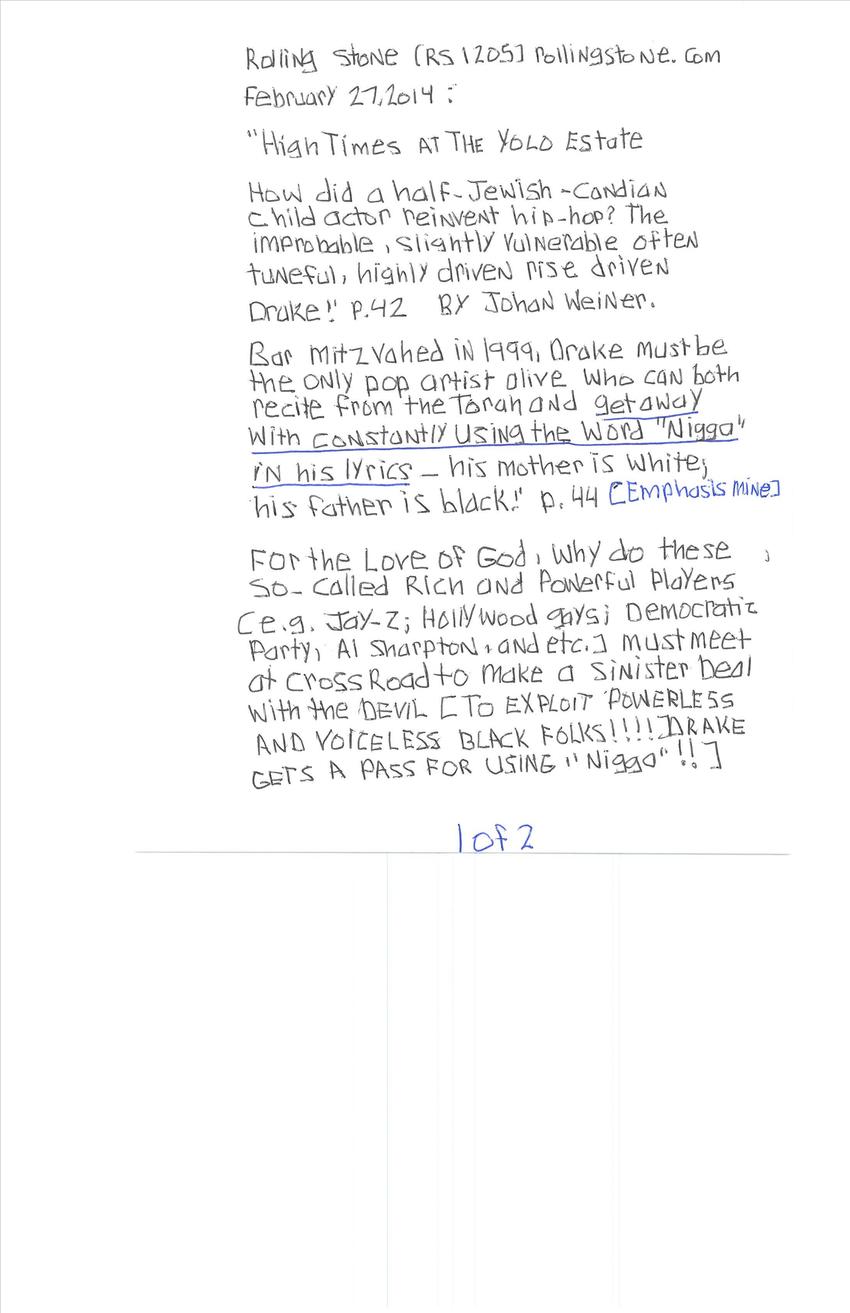 Rolling Stone [RS 1205] Rollingstone.com
February 27, 2014 :
"High Times AT THE YOLO Estate
How did a half-Jewish-Candian
child actor reinvent hip-hop? The
improbable, slightly vulnerable often
tuneful, highly driven rise driven
Drake!" p.42 BY Johan Weiner.
Bar Mitzvahed in 1999, Drake must be
the only pop artist alive who can both
recite from the Torah and get away
with constantly using the word "Nigga"
in his lyrics – his mother is white;
his father is black!" p. 44 [Emphasis Mine]
For the Love of God, why do these
so-called Rich and Powerful Players
[e.g. Jay-Z; Hollywood gays; Democratic
Party, Al Sharpton, and etc.] must meet
at Cross Road to make a sinister Deal
with the DEVIL [TO EXPLOIT POWERLESS
AND VOICELESS BLACK FOLKS!!!!] DRAKE
GETS A PASS FOR USING "Nigga"!!]
1 of 2